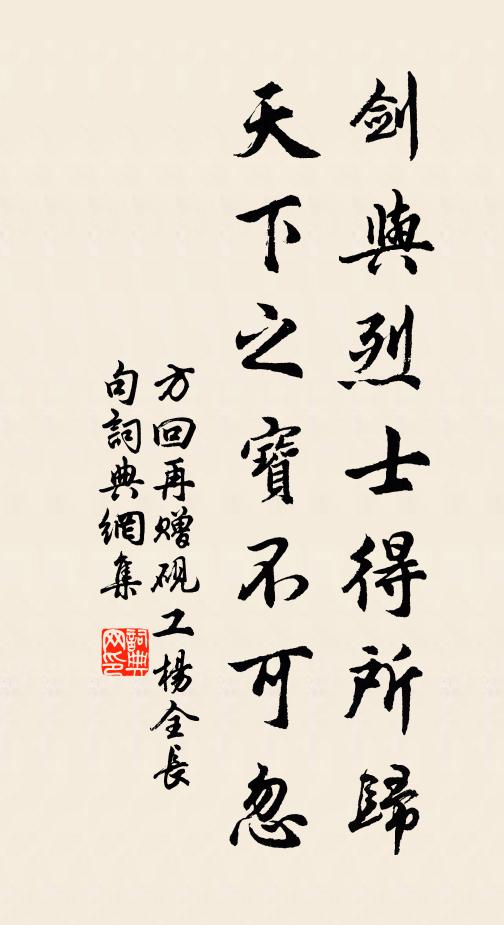 劍與烈士得所歸
天下之寶不可忽
方回再贈硯工楊全長
句詞典網集
詞典网印